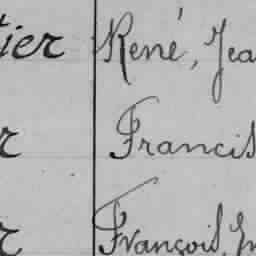 tier René, Jea
r Francis
r François, Jn